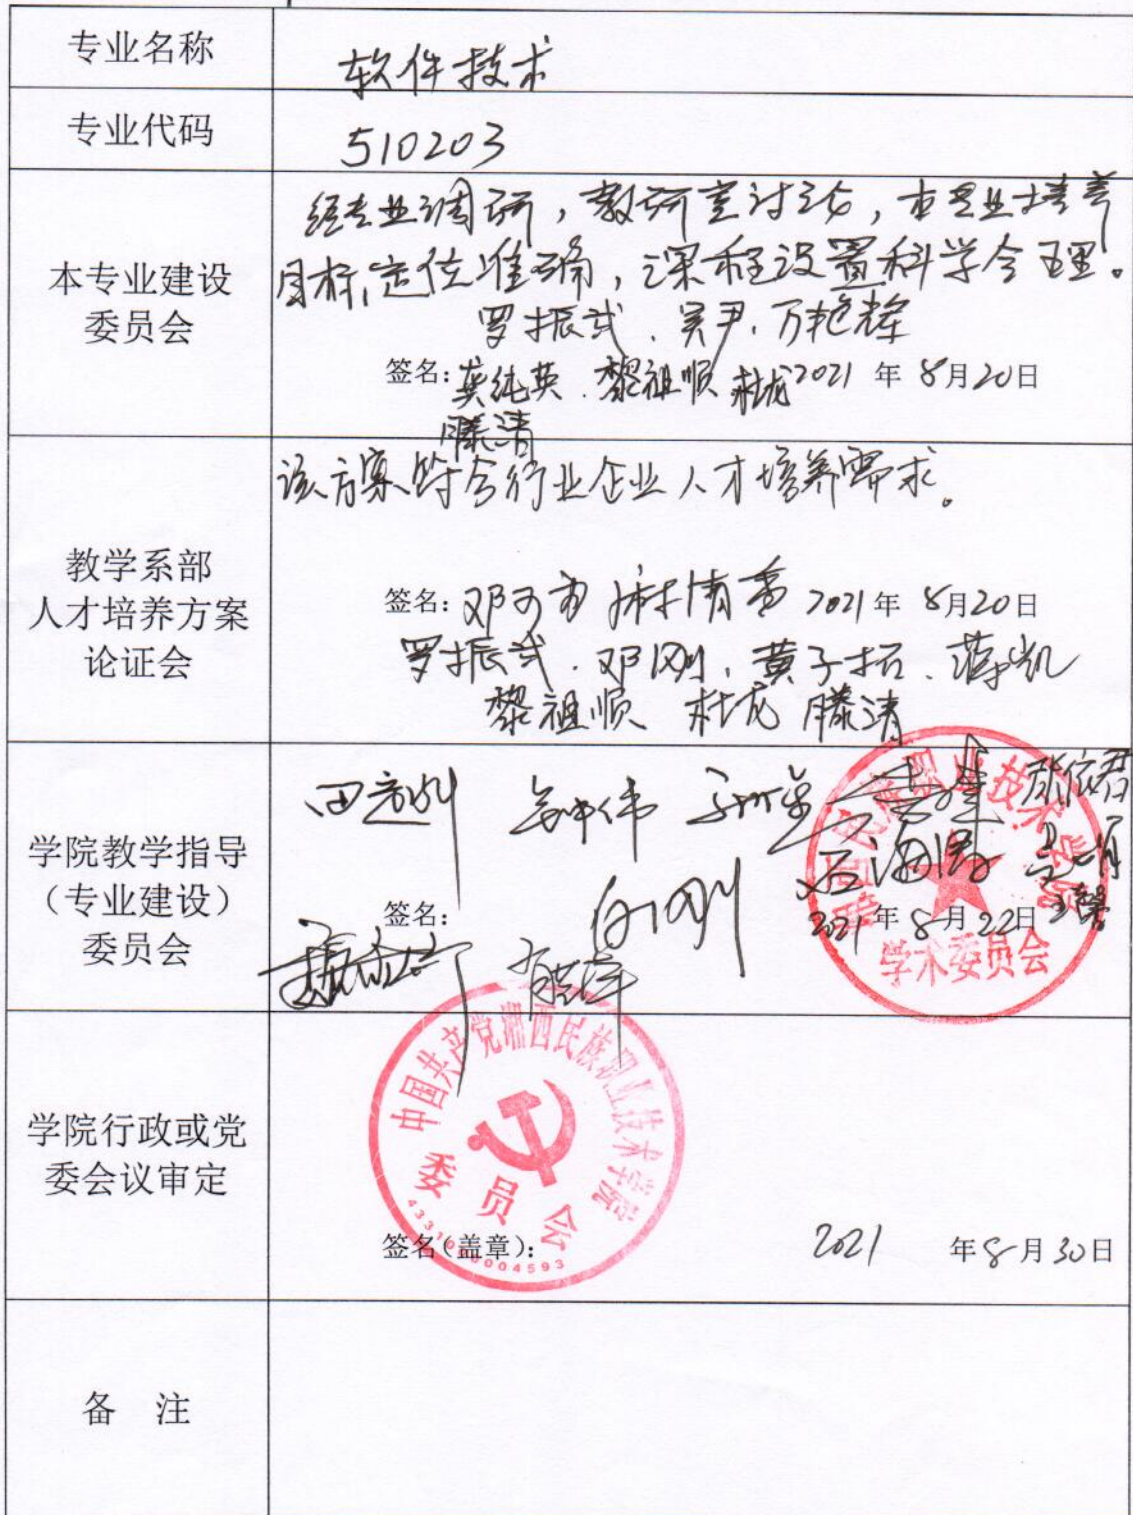 专业名称
软件技术
专业代码
510203
本专业建设
委员会
经专业调研，教研室讨论，本专业培养
目标，定位准确，课程设置科学合理。
罗振武、吴尹、万艳辉
签名：龚纯英、黎祖顺 杜龙 2021 年 8月20日
滕清
教学系部
人才培养方案
论证会
该方案符合行业企业人才培养需求。
签名：邓 麻情 2021年 8月20日
罗振武、邓刚、黄子拓、蒋凯
黎祖顺 杜龙 滕清
学院教学指导
（专业建设）
委员会
田 钟伟 张依君
石海
签名： 刚
2021年 8月22日
湘西民族职业技术学院
学术委员会
学院行政或党
委会议审定
中国共产党湘西民族职业技术学院
委员会
签名(盖章)： 2021 年8月30日
备 注